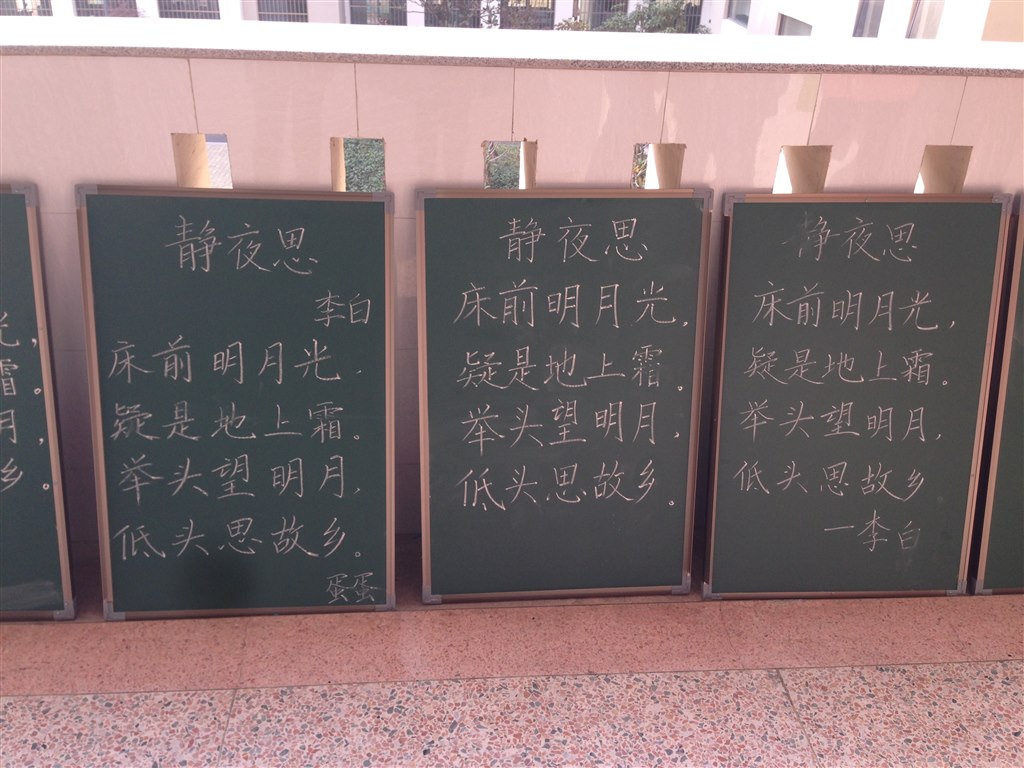 光，
霜。
月，
乡。
静夜思
李白
床前明月光，
疑是地上霜。
举头望明月，
低头思故乡。
蛋蛋
静夜思
床前明月光，
疑是地上霜。
举头望明月，
低头思故乡。
静夜思
床前明月光，
疑是地上霜。
举头望明月，
低头思故乡
一李白